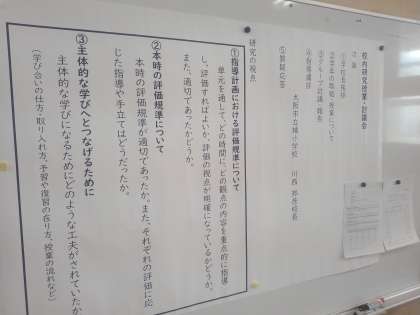 校内研究授業・討議会
次第
①学校長挨拶
⑤質疑応答
研究の視点
①指導計画における評価規準について
単元を通して、どの時間に、どの観点の内容を重点的に指導
し、評価すればよいか、評価の視点が明確になっているかどうか。
また、適切であったかどうか。
②本時の評価規準について
本時の評価規準が適切であったか。また、それぞれの評価に応
じた指導や手立てはどうだったか。
③主体的な学びへとつなげるために
主体的な学びになるためにどのような工夫がされていたか
(学び合いの仕方、取り入れ方、予習や復習の在り方、授業の流れなど)